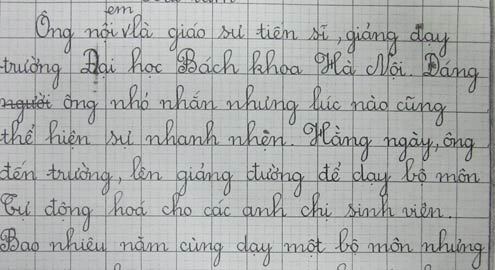 Ông nội em là giáo sư tiến sĩ, giảng dạy
trường Đại học Bách khoa Hà Nội. Dáng
người ông nhỏ nhắn nhưng lúc nào cũng
thể hiện sự nhanh nhẹn. Hằng ngày, ông
đến trường, lên giảng đường để dạy bộ môn
Tự động hoá cho các anh chị sinh viên.
Bao nhiêu năm cùng dạy một bộ môn nhưng